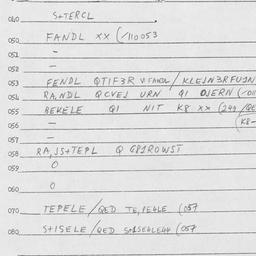 040 S+TERCL
050 FANDL XX (/110053
051 -
052 -
053 FENDL QTIF3R V FANDL / KLEJN3RFUJN
054 RA.NDL QCYEJ URN QI OJERN (/011
055 BEKELE QI NIT K8 XX (244 /QE
056 - (K8-
057 -
058 RA,JS+TEPL Q G81ROWST
059 0
060 0
070 TEPELE/QED TE,PE4LE (057
080 S+ISELE/QED (057